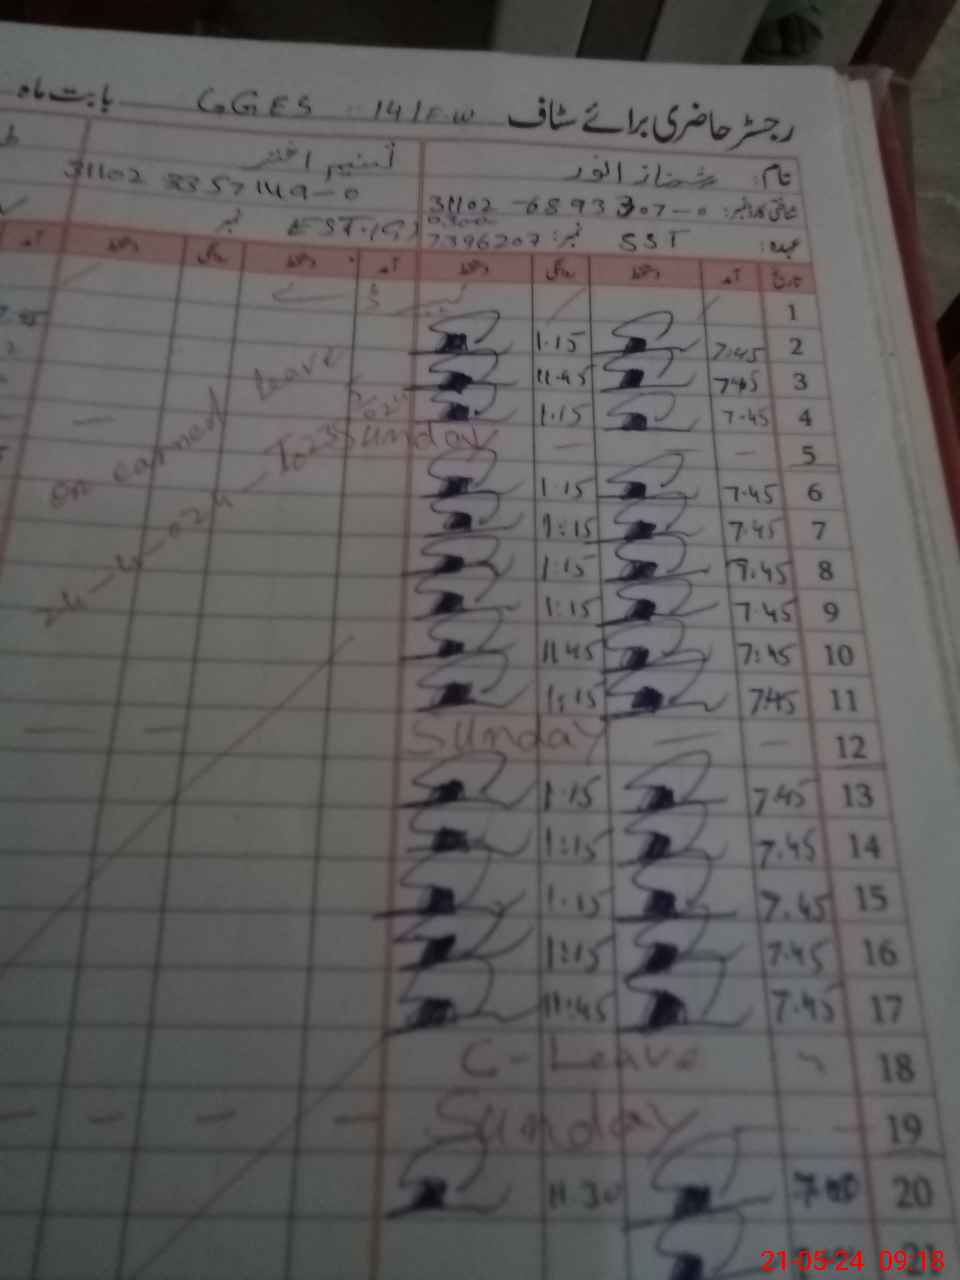 رجسٹر حاضری برائے سٹاف GGES 141/EW بابت ماہ
نام: شہناز انور
شناختی کارڈ نمبر: 31102-6893307-0 31102 8357149-0
عہدہ: SST نمبر: 7396207 EST
تاریخ آمد دستخط روانگی دستخط آمد دستخط روانگی دستخط
1
2 7.45 1.15
3 7.45 11.45
4 7.45 1.15
5 — — Sunday
6 7.45 1.15
7 7.45 1:15
8 7.45 1:15
9 7.45 1:15
10 7:45 11.45
11 7.45 1:15
12 — — Sunday
13 7.45 1.15
14 7.45 1:15
15 7.45 1.15
16 7.45 1:15
17 7.45 11:45
18 C-Leave
19 Sunday
20 11.30
21
on earned leave
24-4-024 — To 23
21-05-24 09:18